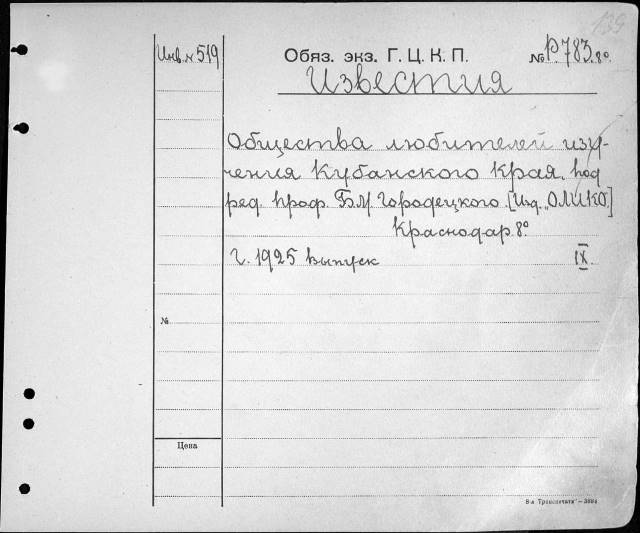 139
Инв. № 519
Обяз. экз. Г. Ц. К. П.
№ Р.783. 8º.
Известия
Общества любителей изу-
чения Кубанского Края. под
ред. проф. Б.М. Городецкого. [Изд. „ОЛИКО."]
Краснодар. 8º
г. 1925 выпуск IX.
№
Цена
8-я Транспечати — 3894